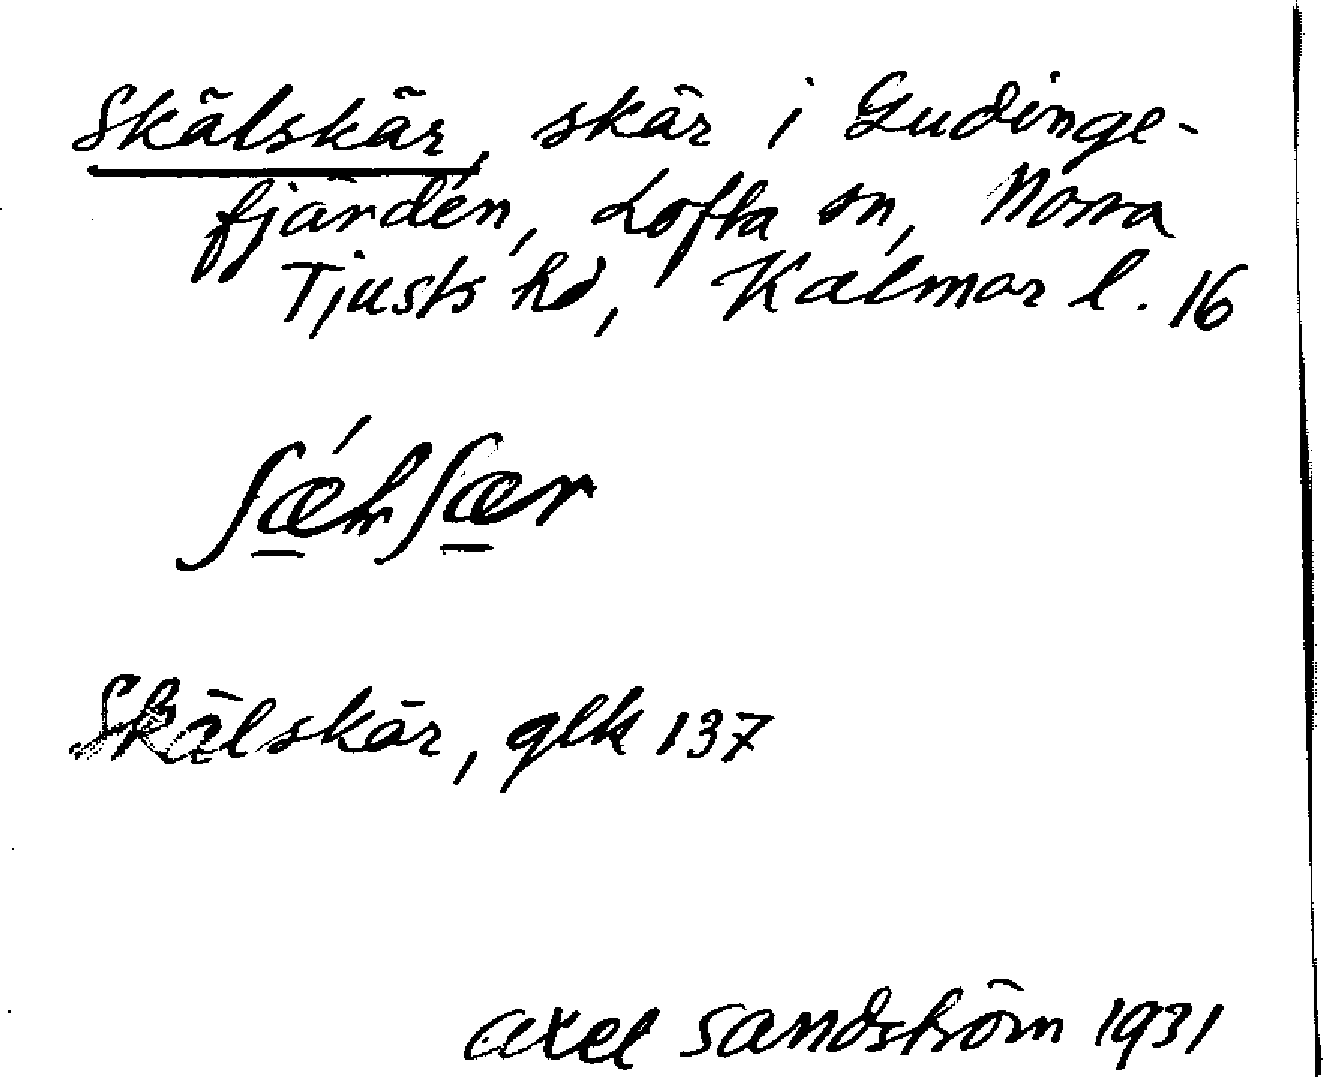 Skälskär, skär i Gudinge-
fjärden, Lofta sn, Norra
Tjusts hd, Kalmar l. 16
Skälskär, glk 137
Axel Sandström 1931